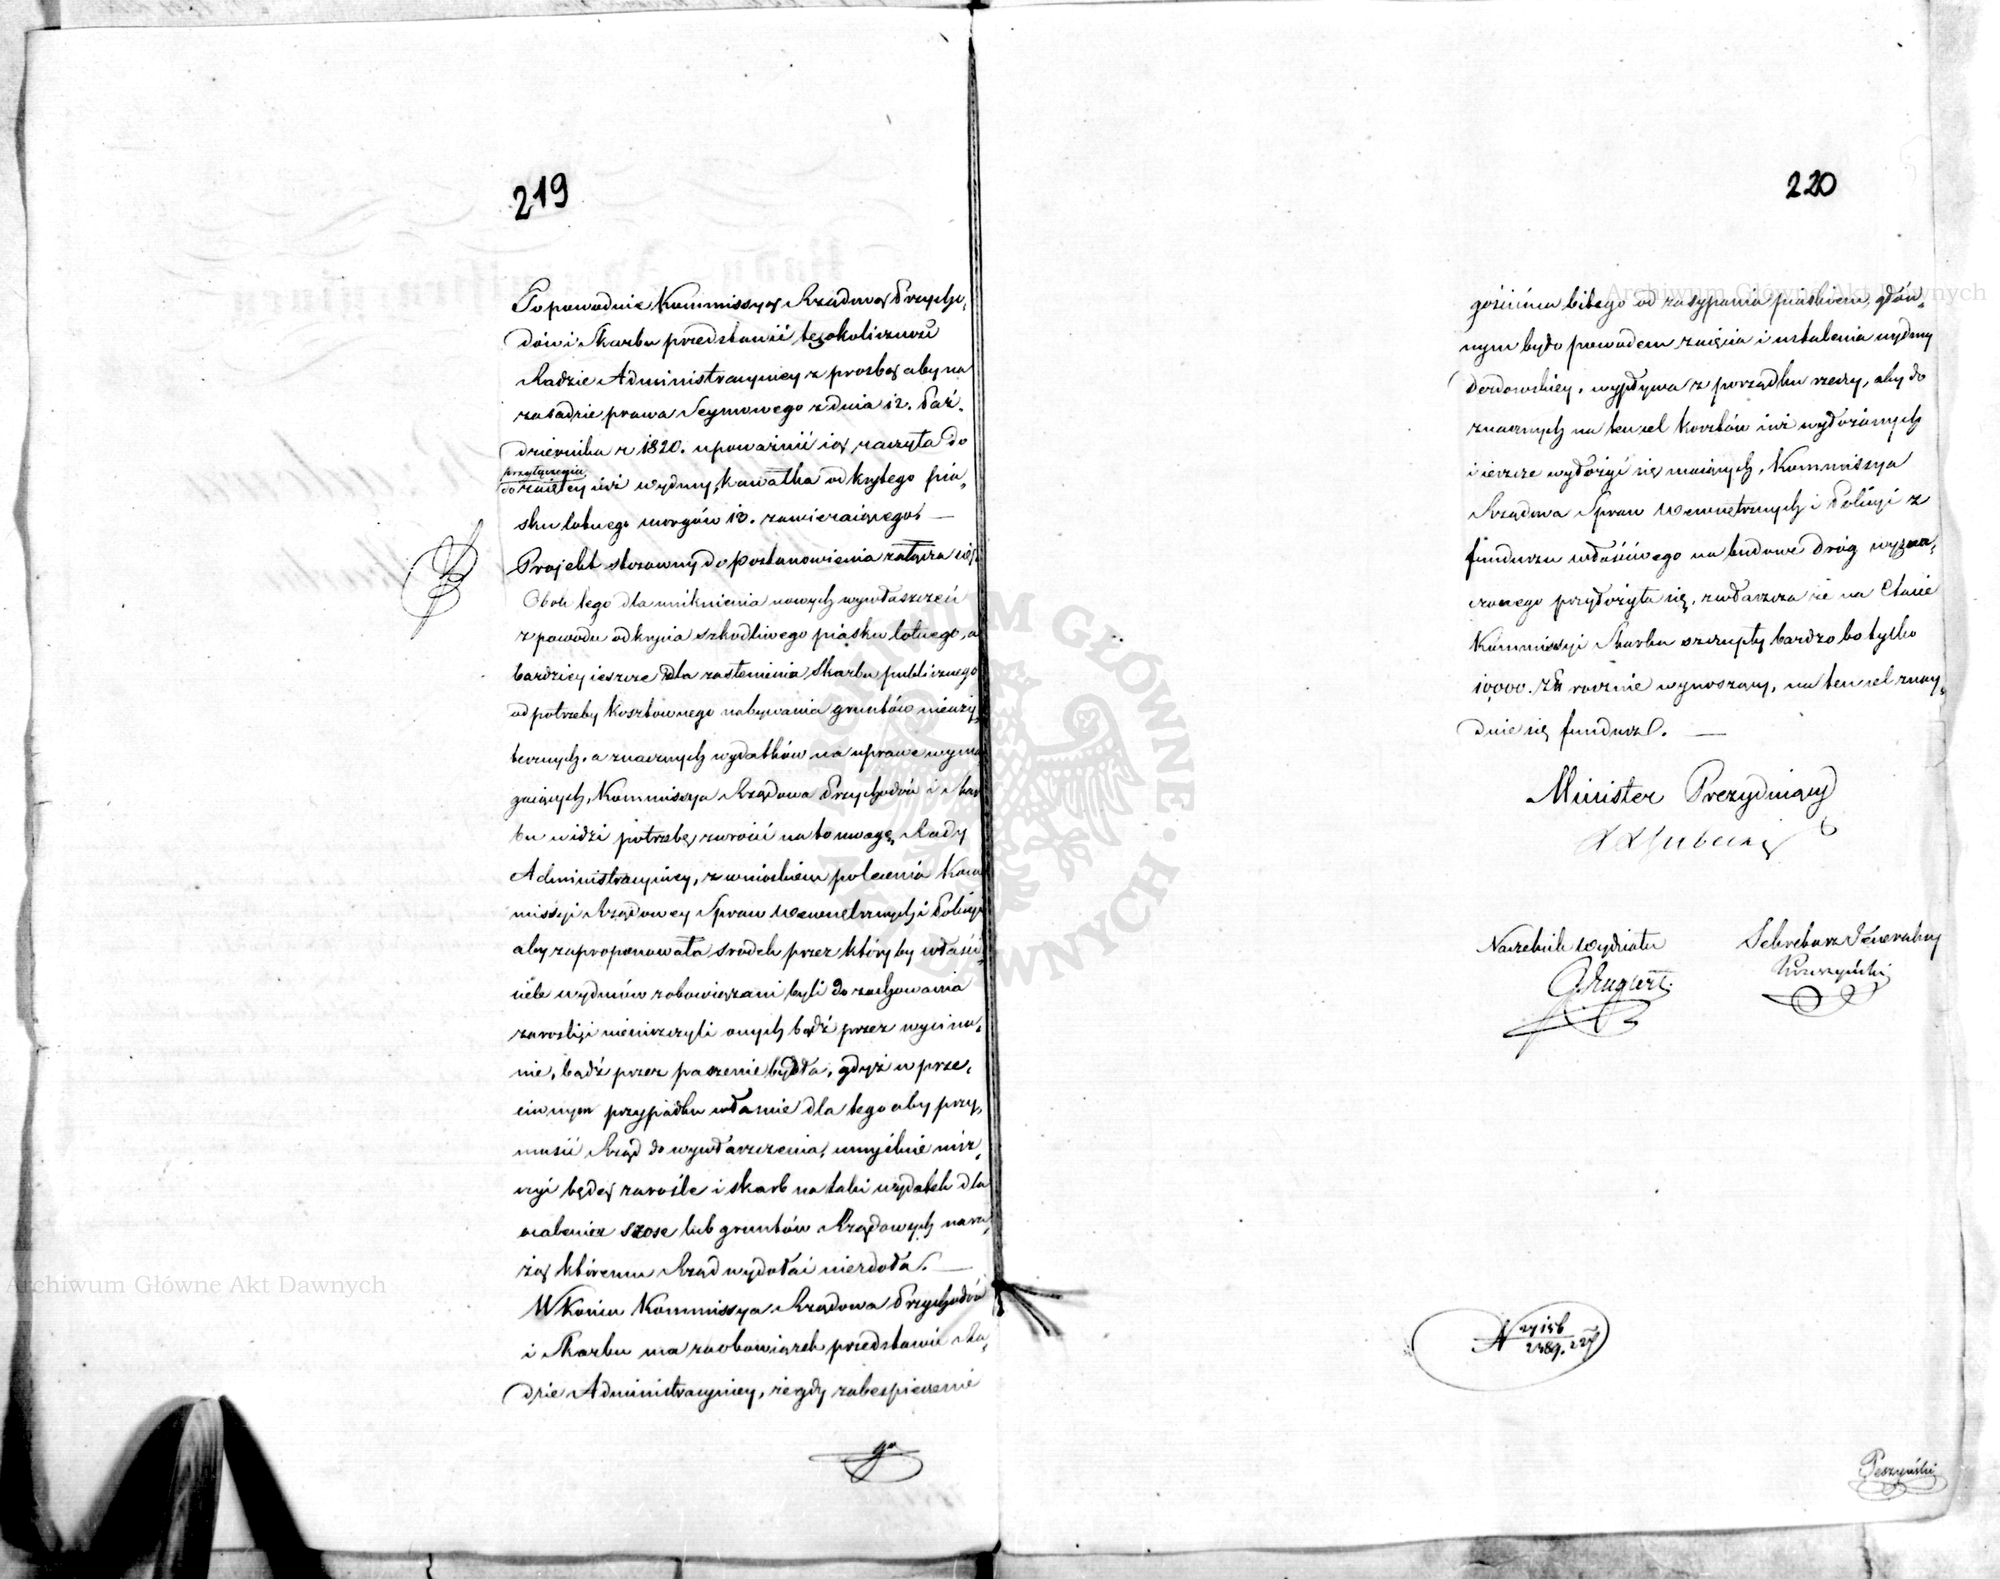 219
To powoduie Kommissyą Rządową Przycho-
dów i Skarbu przedstawić tę okoliczność
Radzie Administracyiney z prosbą aby na
zasadzie prawa Seymowego z dnia 12. Paź-
dziernika r 1820. upoważnić ią raczyła do
przyłączenia
do zaiętey iuż wydmy, kawałka odkrytego pia-
sku lotnego morgów 10. zawieraiącego. —
Projekt stosowny do postanowienia załącza się.
Obok tego dla uniknienia nowych wywłaszczeń
z powodu odkrycia szkodliwego piasku lotnego, a
bardziey ieszcze dla zasłonienia Skarbu publicznego
od potrzeby kosztownego nabywania gruntów nieuży-
tecznych, a znacznych wydatków na uprawę wyma-
gaiących, Kommissya Rządowa Przychodów i Skar
bu widzi potrzebę zwrócić na to uwagę Rady
Administracyiney, z wnioskiem polecenia Kom
missyi Rządowey Spraw Wewnętrznych i Policyi
aby zaproponowała srodek przez któryby właści-
ciele wydmów zobowiązani byli do zachowania
zarosli i nieniszczyli onych bądź przez wycina-
nie, bądź przez paszenie bydła, gdyż w prze-
ciwnym przypadku właśnie dla tego aby przy-
musić Rząd do wywłaszczenia, umyślnie nisz-
czyć będą zarośle i skarb na taki wydatek dla
ocalenia szose lub gruntów Rządowych nara-
żą któremu Rząd wydołać niezdoła. —
W końcu Kommissya Rządowa Przychodów
i Skarbu ma zaobowiązek przedstawić Ra-
dzie Administracyiney, że gdy zabespieczenie
220
gościńca bitego od zasypania piaskiem, głów-
nym było powodem zaięcia i ustalenia wydmy
wypływa z porządku rzeczy, aby do
znacznych na ten cel kosztów iuż wyłożonych
i ieszcze wyłożyć się maiących, Kommissya
Rządowa Spraw Wewnętrznych i Policyi z
funduszu właściwego na budowę dróg wyzna-
czonego przyłożyła się, zwłaszcza że na Etacie
Kommissyi Skarbu szczupły bardzo bo tylko
10000. Złł rocznie wynoszący, na ten cel znay-
duie się fundusz. —
Minister Prezyduiący
Naczelnik Wydziału
Sekretarz Generalny
Archiwum Główne Akt Dawnych
Archiwum Główne Akt Dawnych
ARCHIWUM GŁÓWNE AKT DAWNYCH